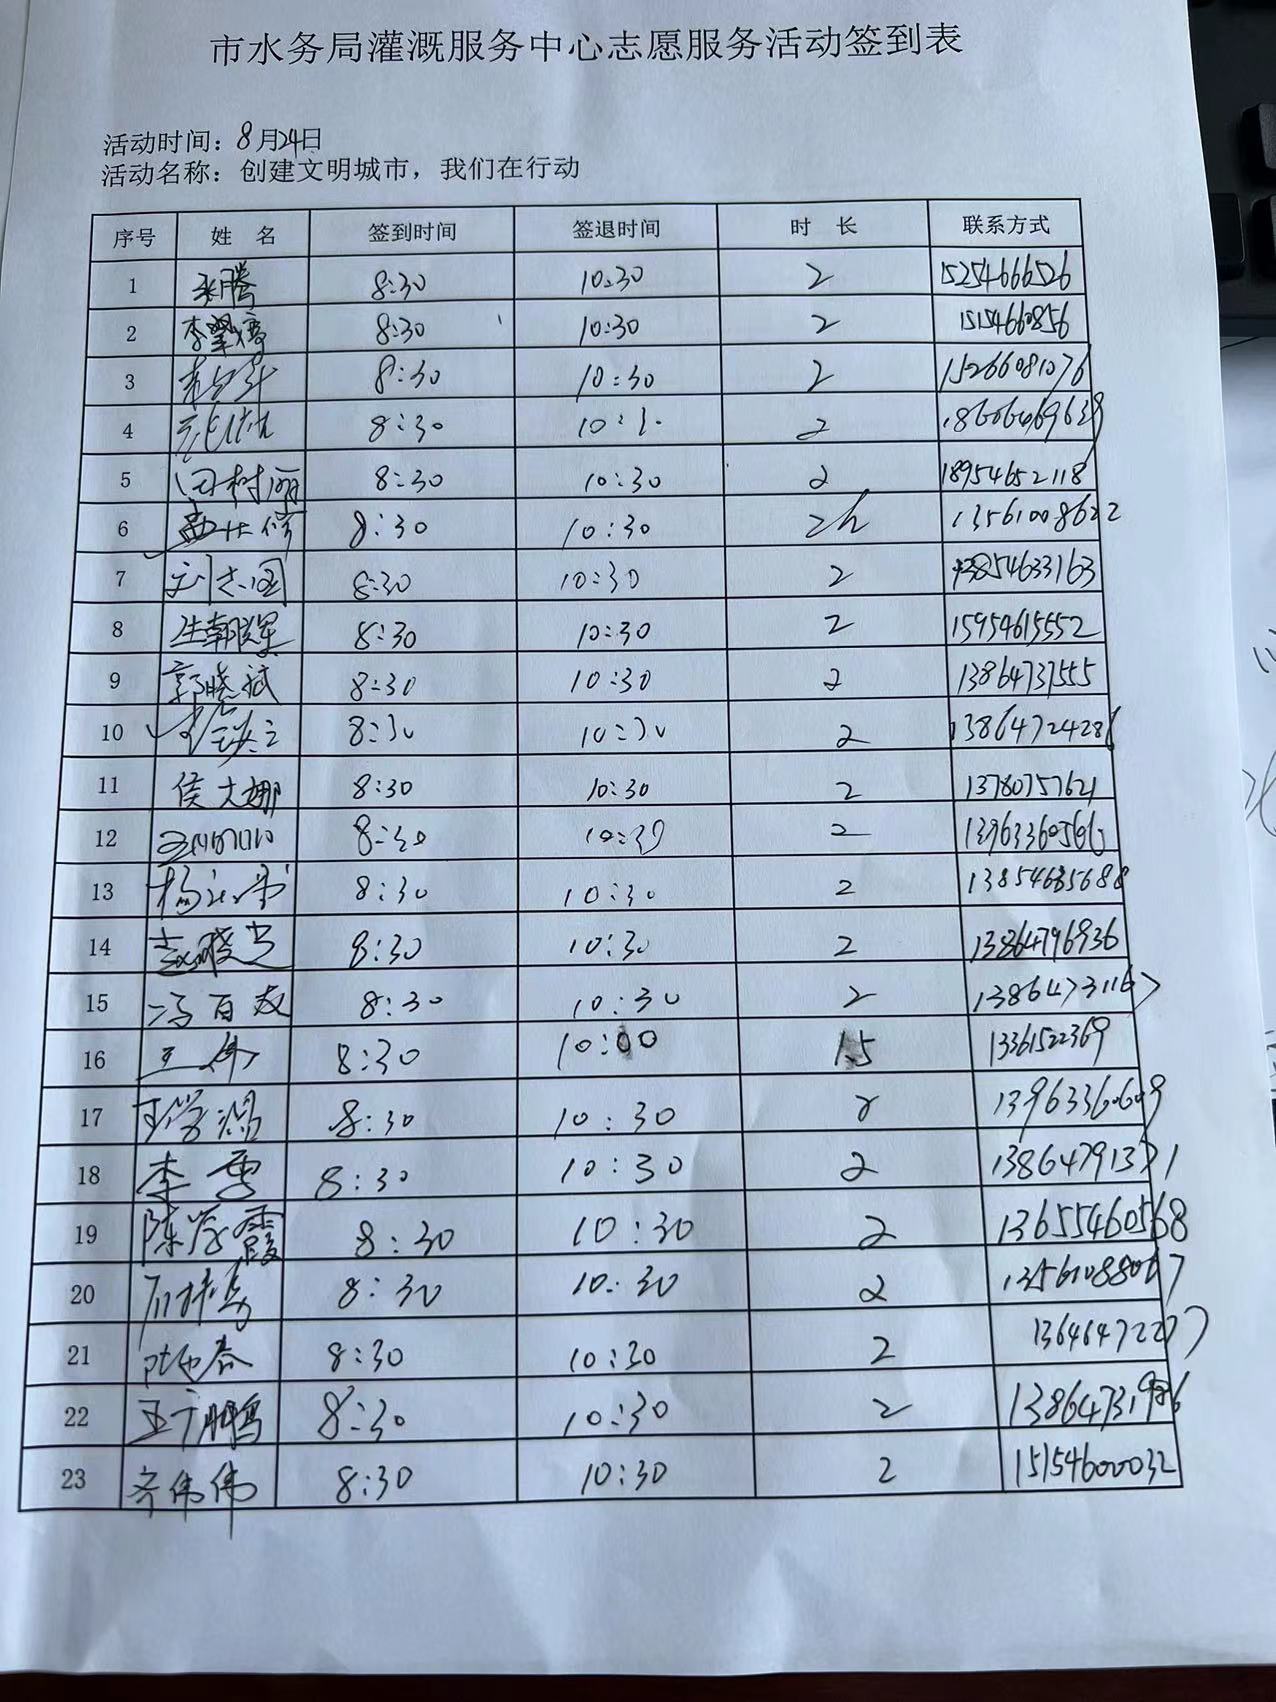 市水务局灌溉服务中心志愿服务活动签到表
活动时间：8月24日
活动名称：创建文明城市，我们在行动
序号 姓 名 签到时间 签退时间 时 长 联系方式
1 8:30 10:30 2 15254666526
2 8:30 10:30 2 1515460856
3 8:30 10:30 2 15266081076
4 8:30 10:30 2
5 田树丽 8:30 10:30 2 18954652118
6 8:30 10:30 2h 13561008622
7 刘志国 8:30 10:30 2
8 生朝辉 8:30 10:30 2 15954615552
9 郭晓斌 8:30 10:30 2 13864737555
10 8:30 10:30 2 13864724286
11 侯大娜 8:30 10:30 2 13780757621
12 8:30 10:30 2 13963360566
13 8:30 10:30 2 13854685688
14 赵晓克 8:30 10:30 2 13864796936
15 冯百友 8:30 10:30 2 13864731167
16 王伟 8:30 10:00 1.5 13361522369
17 8:30 10:30 2 13963360609
18 李雪 8:30 10:30 2 13864791371
19 陈学霞 8:30 10:30 2 13655460568
20 8:30 10:30 2
21 8:30 10:30 2 13646472277
22 王广鹏 8:30 10:30 2
23 齐伟伟 8:30 10:30 2 15154600032